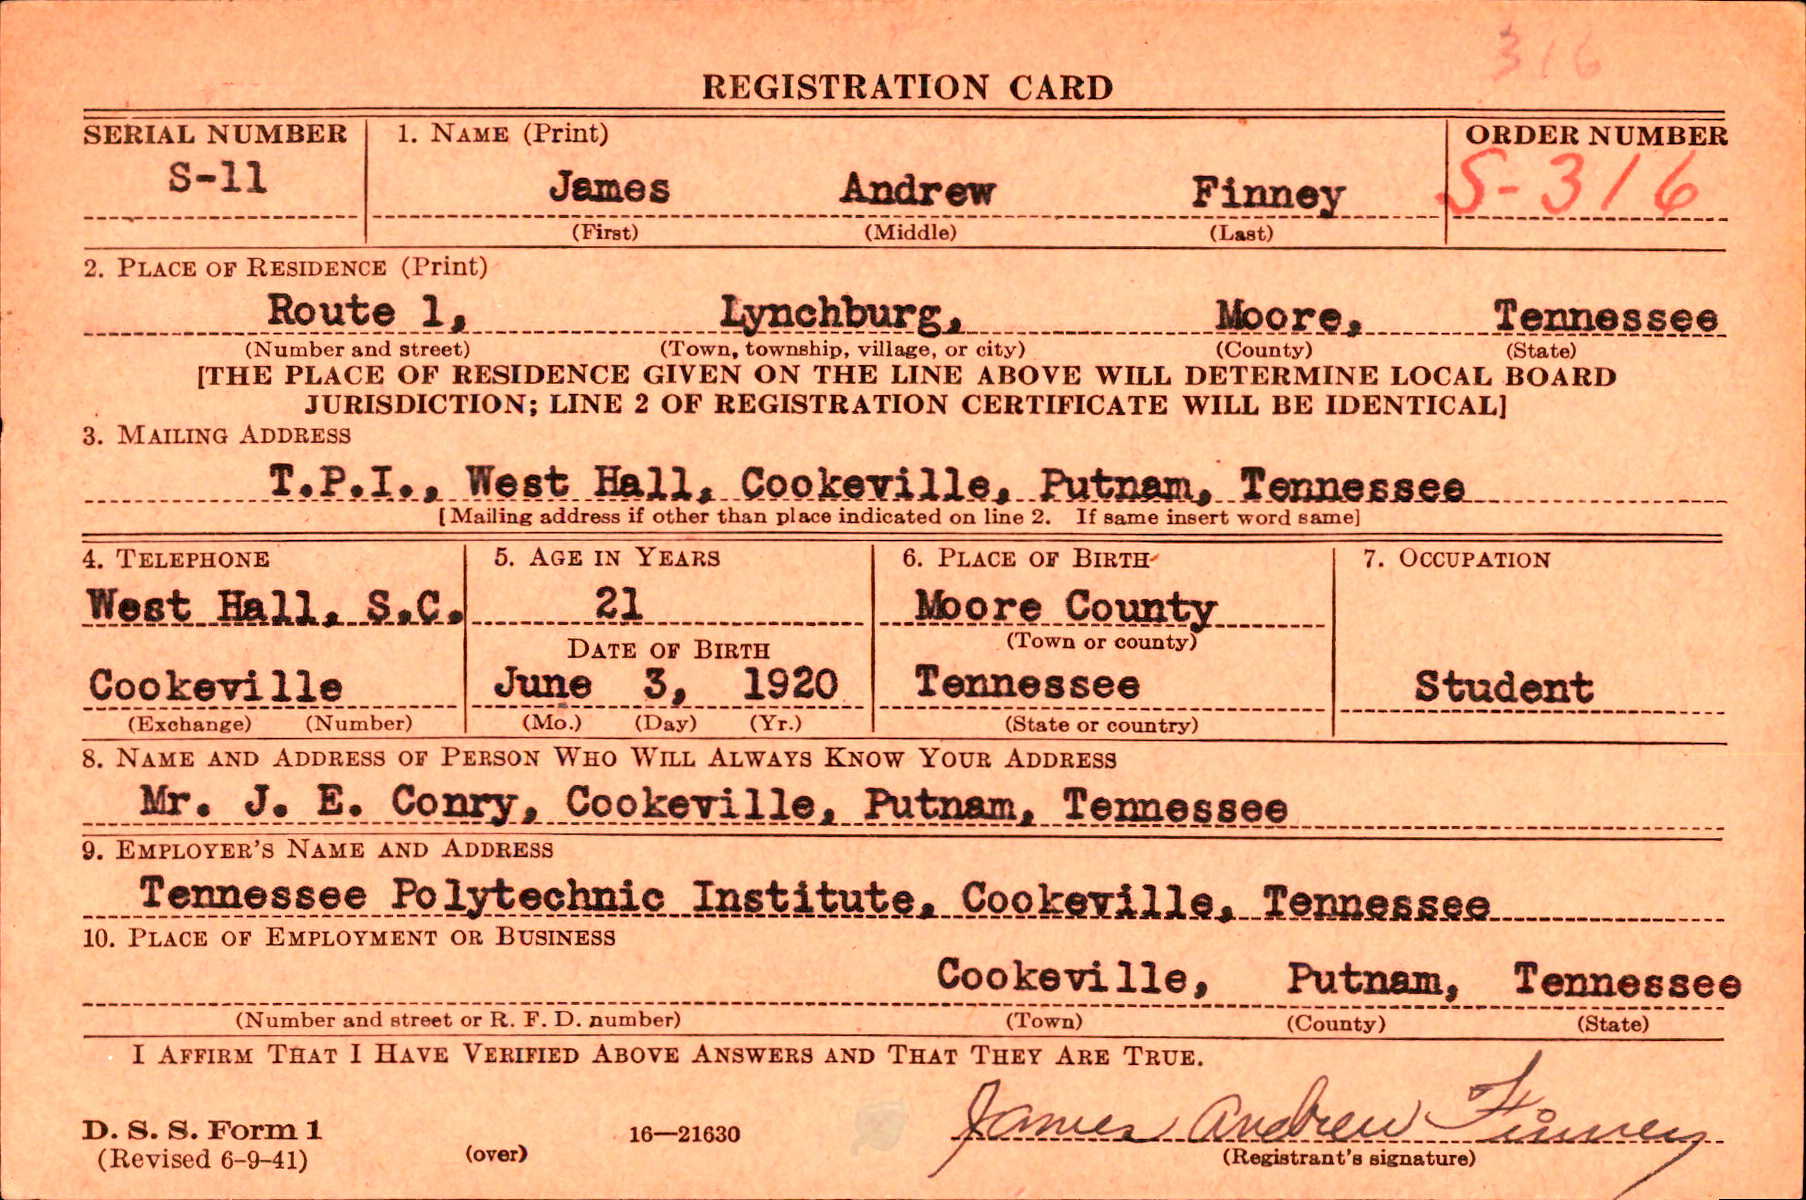 316
REGISTRATION CARD
SERIAL NUMBER 1. NAME (Print) ORDER NUMBER
S-11 James Andrew Finney S-316
(First) (Middle) (Last)
2. PLACE OF RESIDENCE (Print)
Route 1, Lynchburg, Moore, Tennessee
(Number and street) (Town, township, village, or city) (County) (State)
[THE PLACE OF RESIDENCE GIVEN ON THE LINE ABOVE WILL DETERMINE LOCAL BOARD
JURISDICTION; LINE 2 OF REGISTRATION CERTIFICATE WILL BE IDENTICAL]
3. MAILING ADDRESS
T.P.I., West Hall, Cookeville, Putnam, Tennessee
[Mailing address if other than place indicated on line 2. If same insert word same]
4. TELEPHONE 5. AGE IN YEARS 6. PLACE OF BIRTH 7. OCCUPATION
West Hall, S.C. 21 Moore County
DATE OF BIRTH (Town or county)
Cookeville June 3, 1920 Tennessee Student
(Exchange) (Number) (Mo.) (Day) (Yr.) (State or country)
8. NAME AND ADDRESS OF PERSON WHO WILL ALWAYS KNOW YOUR ADDRESS
Mr. J. E. Conry, Cookeville, Putnam, Tennessee
9. EMPLOYER'S NAME AND ADDRESS
Tennessee Polytechnic Institute, Cookeville, Tennessee
10. PLACE OF EMPLOYMENT OR BUSINESS
Cookeville, Putnam, Tennessee
(Number and street or R. F. D. number) (Town) (County) (State)
I AFFIRM THAT I HAVE VERIFIED ABOVE ANSWERS AND THAT THEY ARE TRUE.
D. S. S. Form 1 16—21630 James Andrew Finney
(Revised 6-9-41) (over) (Registrant's signature)